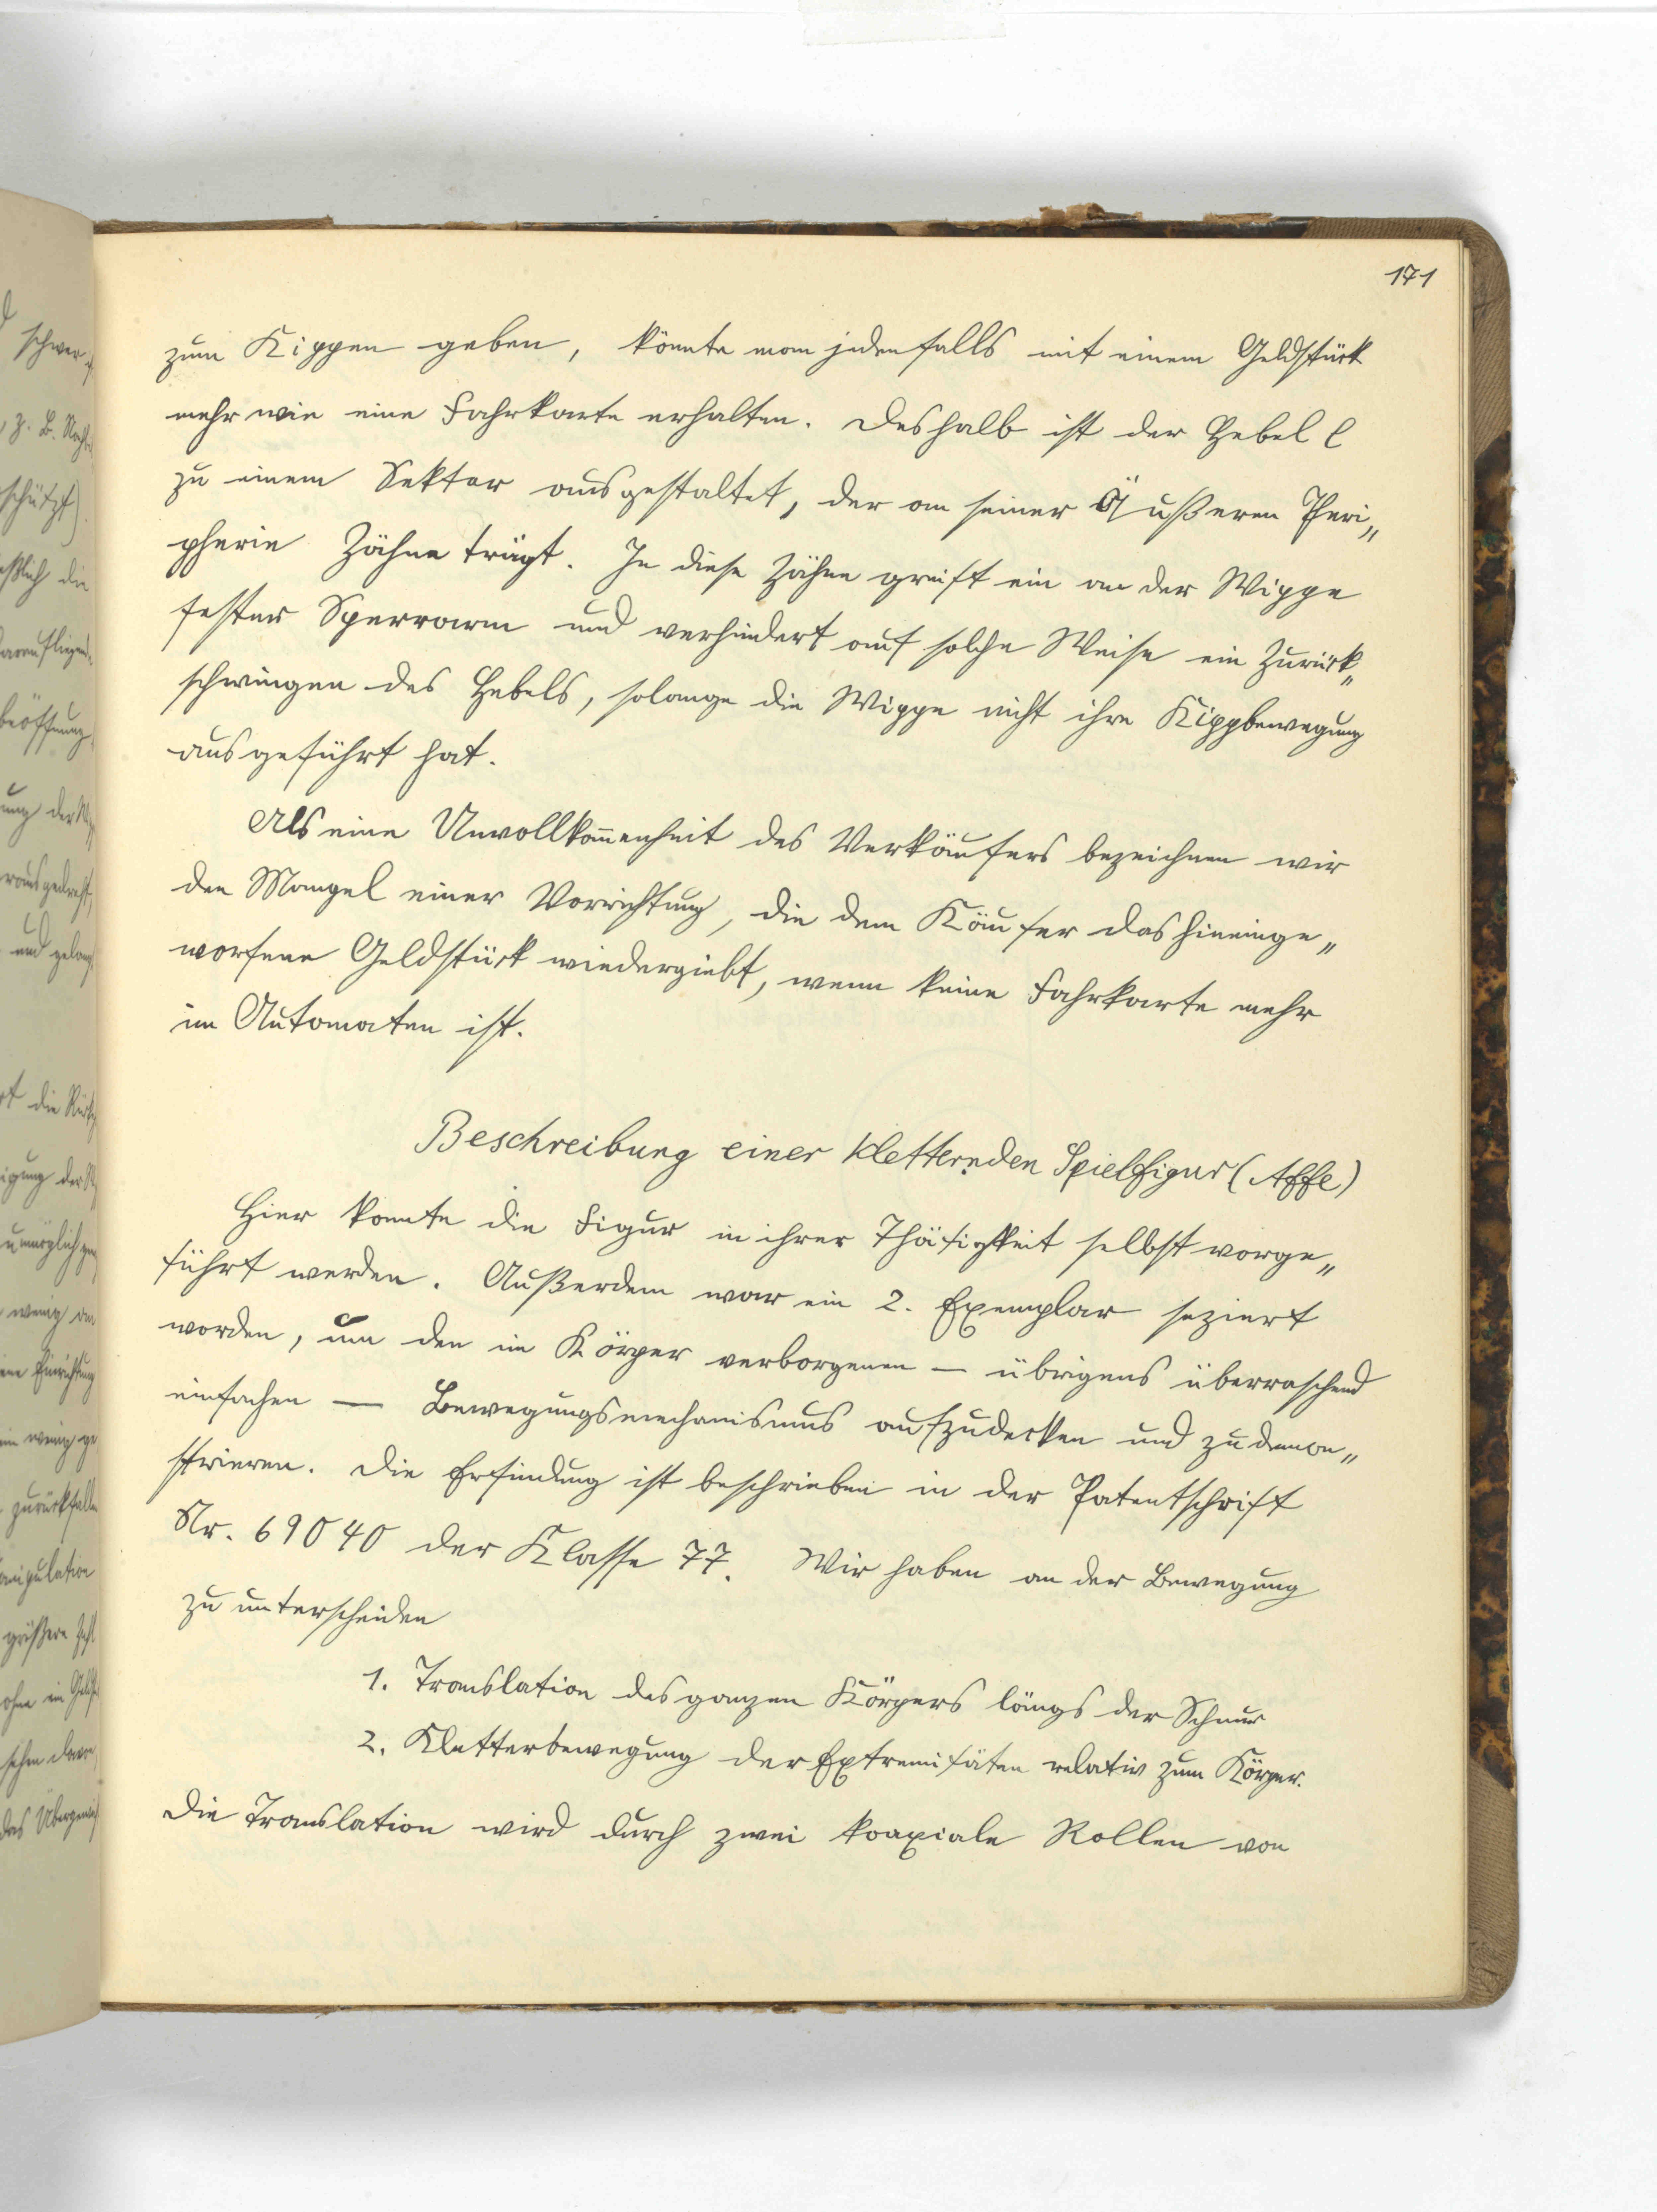 171
zum Kippen geben, könnte man jedenfalls mit einem Geldstück
mehr wie eine Fahrkarte erhalten. Deshalb ist der Hebel l
zu einem Sektor ausgestaltet, der an seiner äußeren Peri„
pherie Zähne trägt. In diese Zähne greift ein an der Wippe
fester Sperrarm und verhindert auf solche Weise ein Zurück„
schwingen des Hebels, solange die Wippe nicht ihre Kippbewegung
ausgeführt hat.
Als eine Unvollkom̄enheit des Verkäufers bezeichnen wir
den Mangel einer Vorrichtung, die dem Käufer das hineinge„
worfene Geldstück wiedergiebt, wenn keine Fahrkarte mehr
im Automaten ist.
Beschreibung einer kletternden Spielfigur (Affe)
Hier konnte die Figur in ihrer Thätigkeit selbst vorge„
führt werden. Außerdem war ein 2. Exemplar seziert
worden, um den im Körper verborgenen — übrigens überraschend
einfachen — Bewegungsmechanismus aufzudecken und zu demon„
strieren. Die Erfindung ist beschrieben in der Patentschrift
Nr. 69040 der Klasse 77. Wir haben an der Bewegung
zu unterscheiden
1. Translation des ganzen Körpers längs der Schnur
2. Kletterbewegung der Extremitäten relativ zum Körper.
Die Translation wird durch zwei koaxiale Rollen von